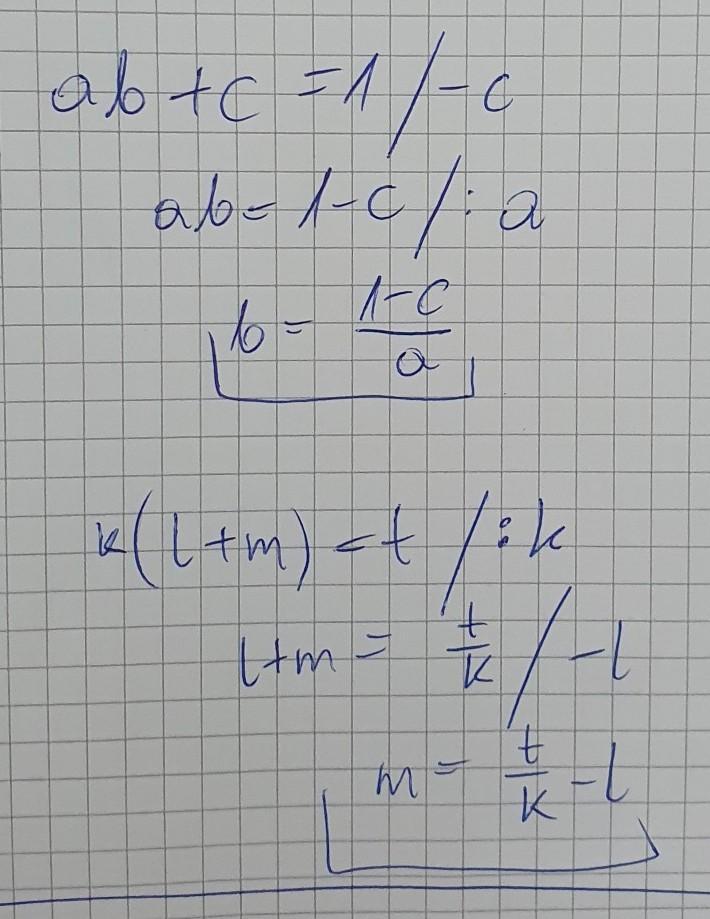 ab + c = 1 / - c
ab = 1 - c / : a
b = \frac{1-c}{a}
k(l+m) = t / : k
l+m = \frac{t}{k} / - l
m = \frac{t}{k} - l